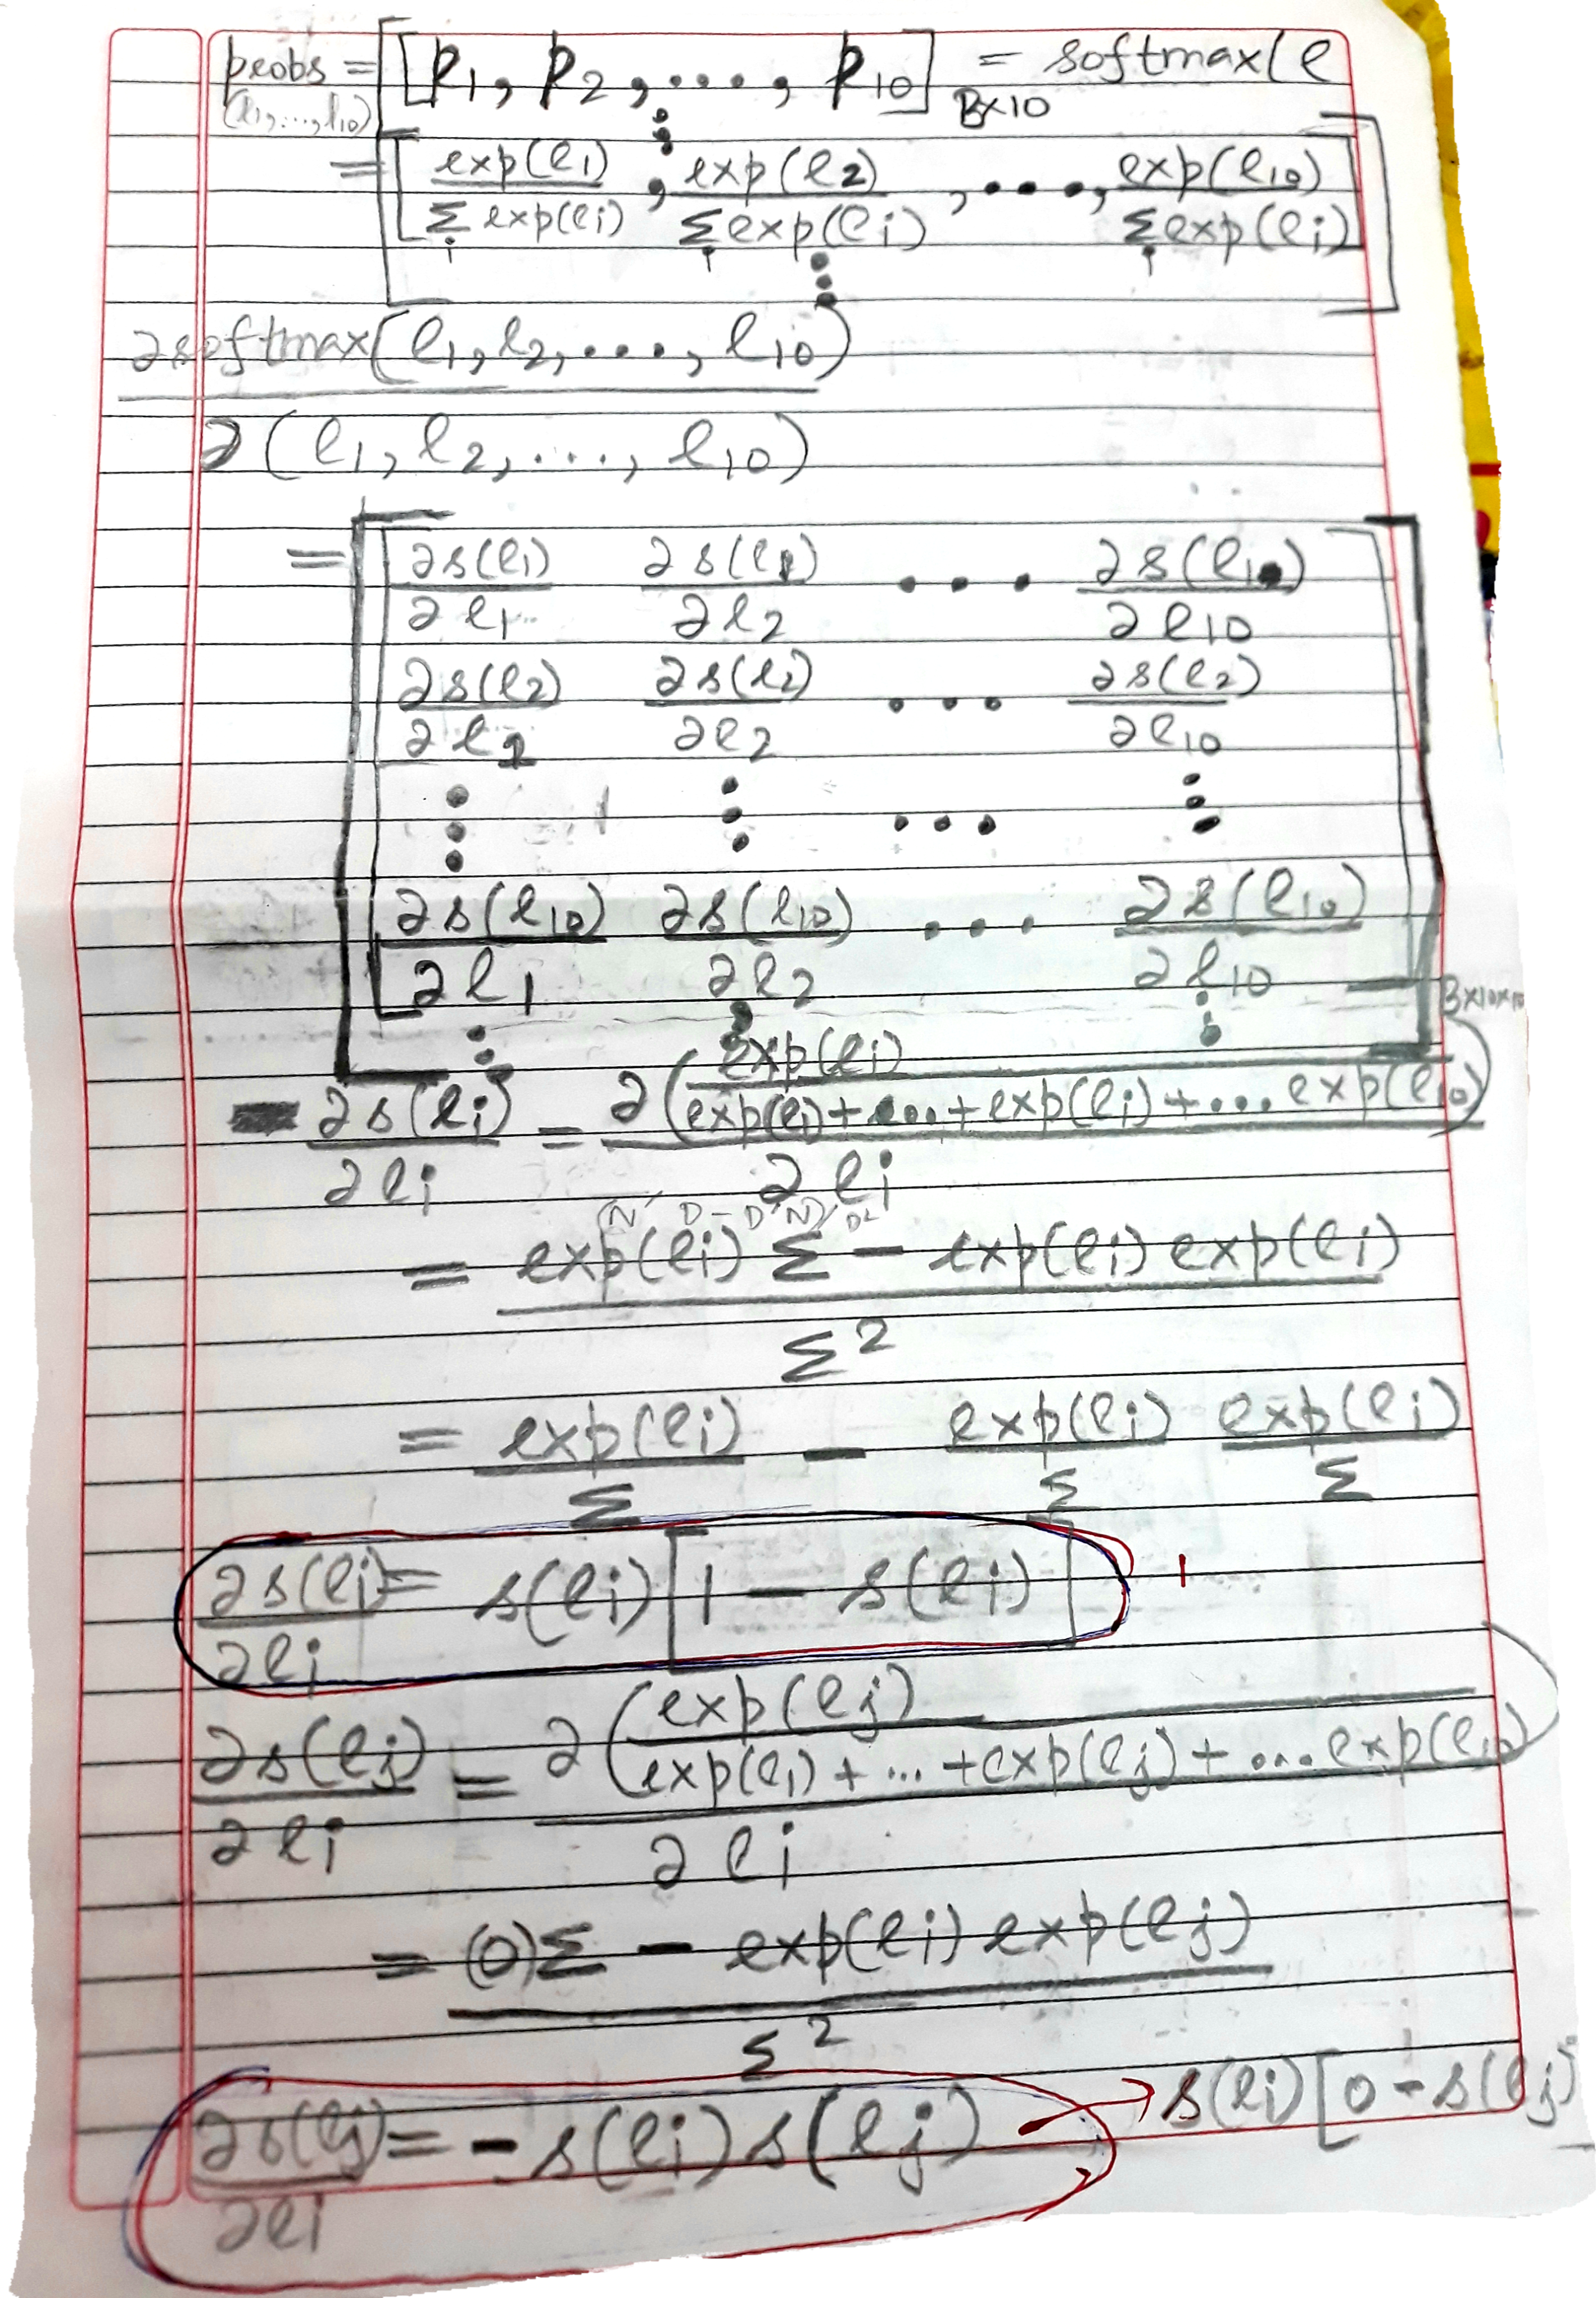 probs = [p1, p2, ...., p10] B×10 = softmax(l
(l1,...,l10)
= [exp(l1)/Σi exp(li), exp(l2)/Σi exp(li), ...., exp(l10)/Σi exp(li)]
∂softmax(l1, l2, ...., l10)
∂(l1, l2, ...., l10)
= [∂s(l1)/∂l1 ∂s(l1)/∂l2 ... ∂s(l1)/∂l10
∂s(l2)/∂l1 ∂s(l2)/∂l2 ... ∂s(l2)/∂l10
⋮ ⋮ ... ⋮
∂s(l10)/∂l1 ∂s(l10)/∂l2 ... ∂s(l10)/∂l10] B×10×10
∂s(li)/∂li = ∂(exp(li)/(exp(l1)+...+exp(li)+...exp(l10)))/∂li
(N' D - D' N)/D²
= (exp(li) Σ - exp(li) exp(li))/Σ²
= exp(li)/Σ - exp(li)/Σ exp(li)/Σ
∂s(li)/∂li = s(li)[1 - s(li)] 1
∂s(lj)/∂li = ∂(exp(lj)/(exp(l1)+...+exp(lj)+...exp(l10)))/∂li
= ((0)Σ - exp(li) exp(lj))/Σ²
∂s(lj)/∂li = -s(li)s(lj) → s(li)[0 - s(lj)